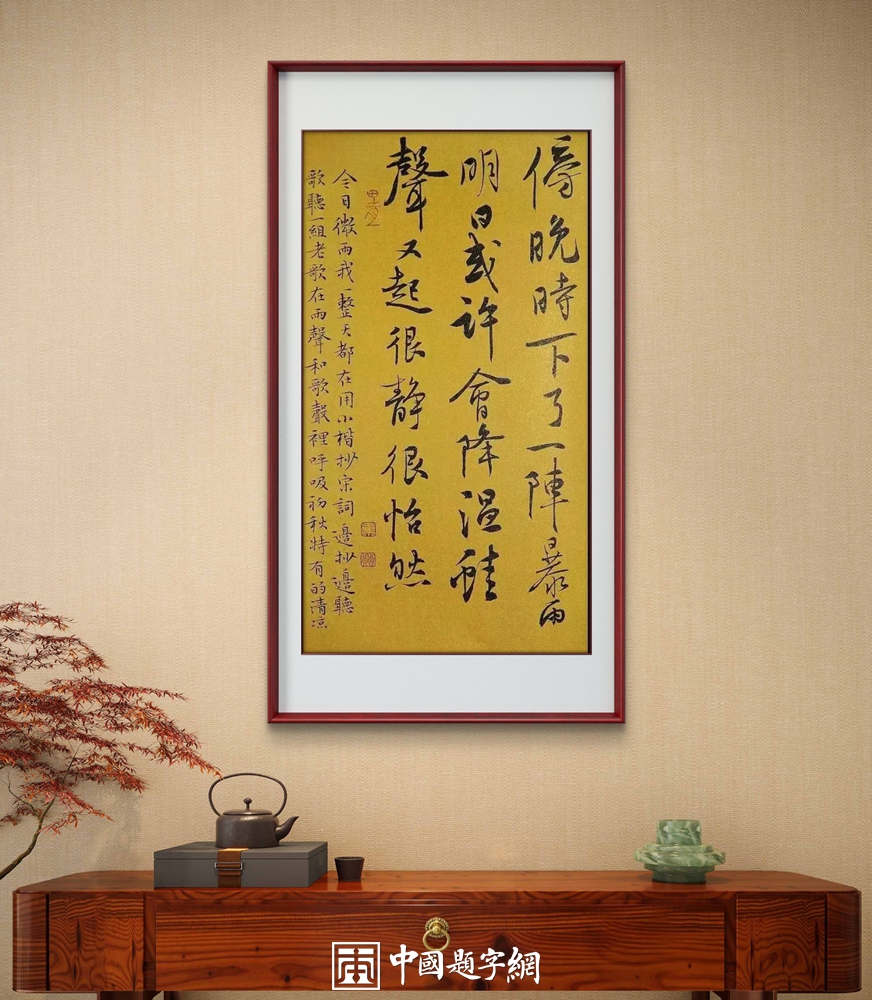 傍晚時下了一陣暴雨
明日或許會降溫蛙
聲又起很靜很怡然
今日微雨我一整天都在用小楷抄宋詞邊抄邊聽
歌聽一組老歌在雨聲和歌聲裡呼吸初秋特有的清凉
中國題字網